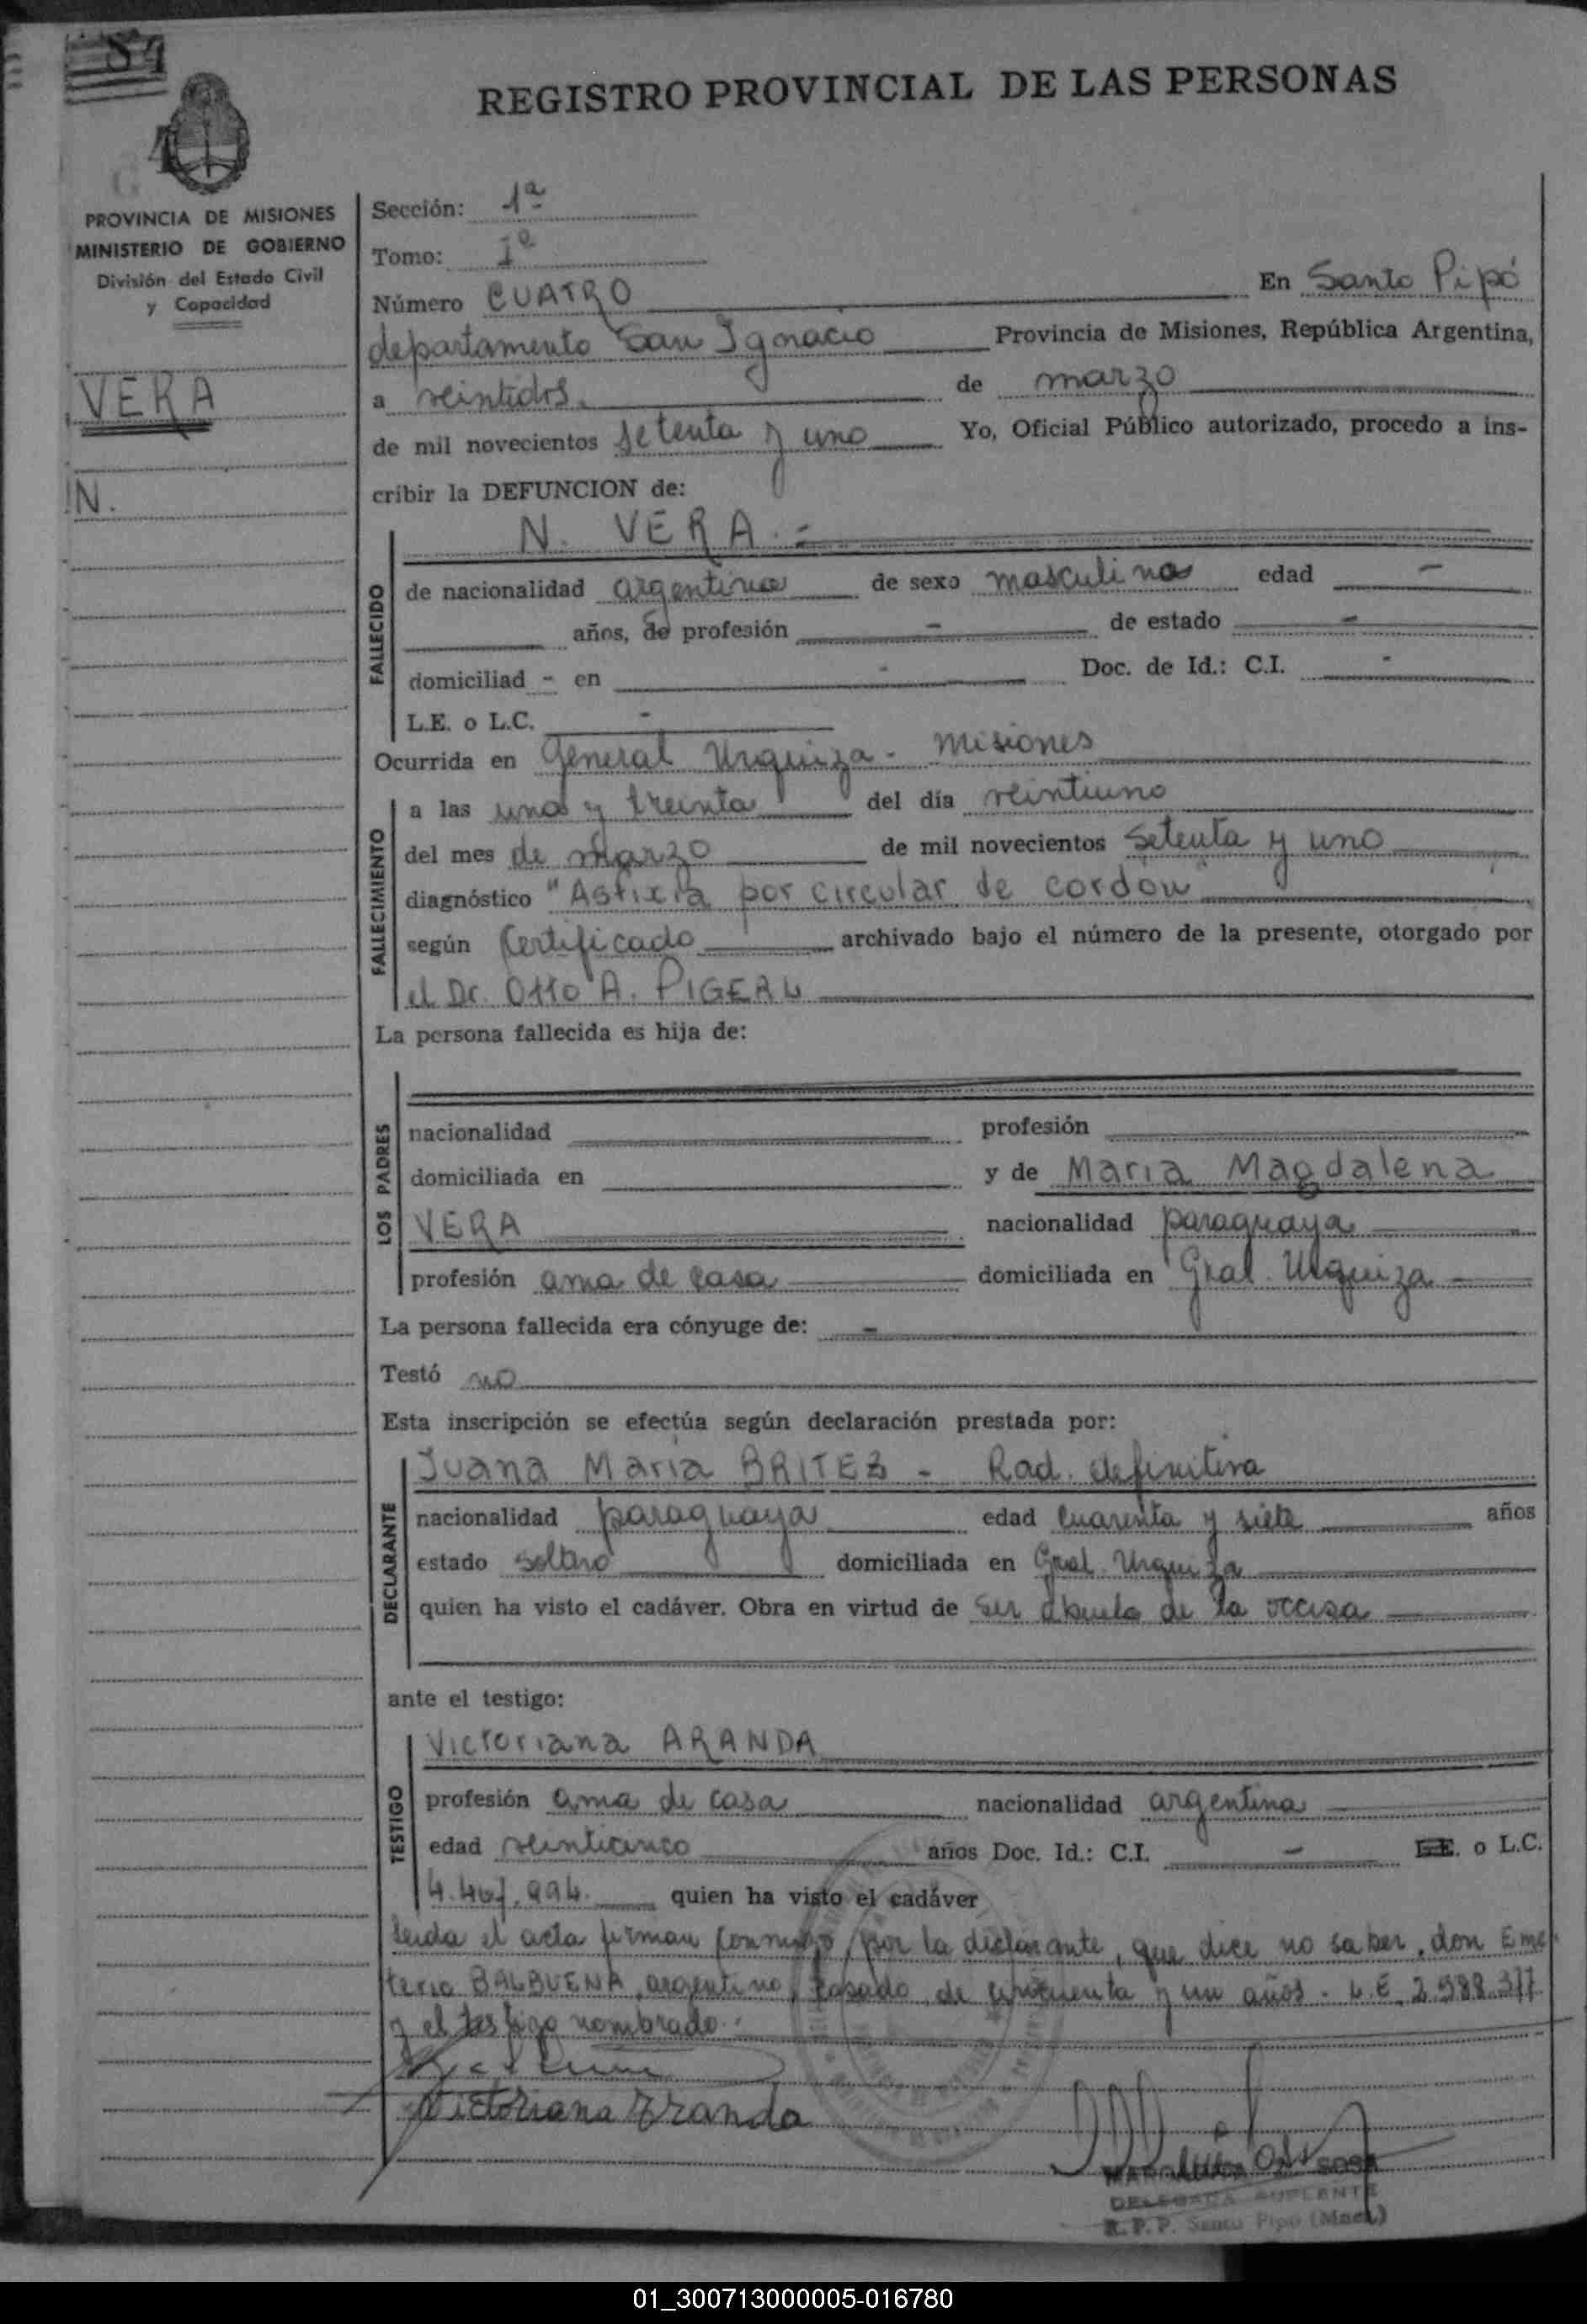 84
REGISTRO PROVINCIAL DE LAS PERSONAS
PROVINCIA DE MISIONES
MINISTERIO DE GOBIERNO
División del Estado Civil
y Capacidad
VERA
N.
Sección: 1ª
Tomo: Iº
Número CUATRO En Santo Pipó
departamento San Ignacio Provincia de Misiones, República Argentina,
a veintidos de marzo
de mil novecientos setenta y uno Yo, Oficial Público autorizado, procedo a ins-
cribir la DEFUNCION de:
N. VERA.-
FALLECIDO
de nacionalidad argentina de sexo masculino edad -
años, de profesión - de estado -
domiciliad - en - Doc. de Id.: C.I. -
L.E. o L.C. -
Ocurrida en General Urquiza - Misiones
FALLECIMIENTO
a las una y treinta del día veintiuno
del mes de marzo de mil novecientos setenta y uno
diagnóstico "Asfixia por circular de cordón"
según Certificado archivado bajo el número de la presente, otorgado por
el Dr. Otto A. PIGERL
La persona fallecida es hija de:
LOS PADRES
nacionalidad profesión
domiciliada en y de Maria Magdalena
VERA nacionalidad paraguaya
profesión ama de casa domiciliada en Gral. Urquiza
La persona fallecida era cónyuge de: -
Testó no
Esta inscripción se efectúa según declaración prestada por:
DECLARANTE
Juana Maria BRITEZ - Rad. definitiva
nacionalidad paraguaya edad cuarenta y siete años
estado soltero domiciliada en Gral. Urquiza
quien ha visto el cadáver. Obra en virtud de ser abuela de la occisa
ante el testigo:
TESTIGO
Victoriana ARANDA
profesión ama de casa nacionalidad argentina
edad veinticinco años Doc. Id.: C.I. - L.E. o L.C.
quien ha visto el cadáver
leida el acta firman conmigo, por la declarante, que dice no saber, don Eme
terio BALBUENA, argentino, casado, de cincuenta y un años - L.E. 2.588.377
y el testigo nombrado.-
Victoriana Aranda
SOSA
DELEGADA SUPLENTE
R.P.P. Santo Pipó (Mnes.)
01_300713000005-016780